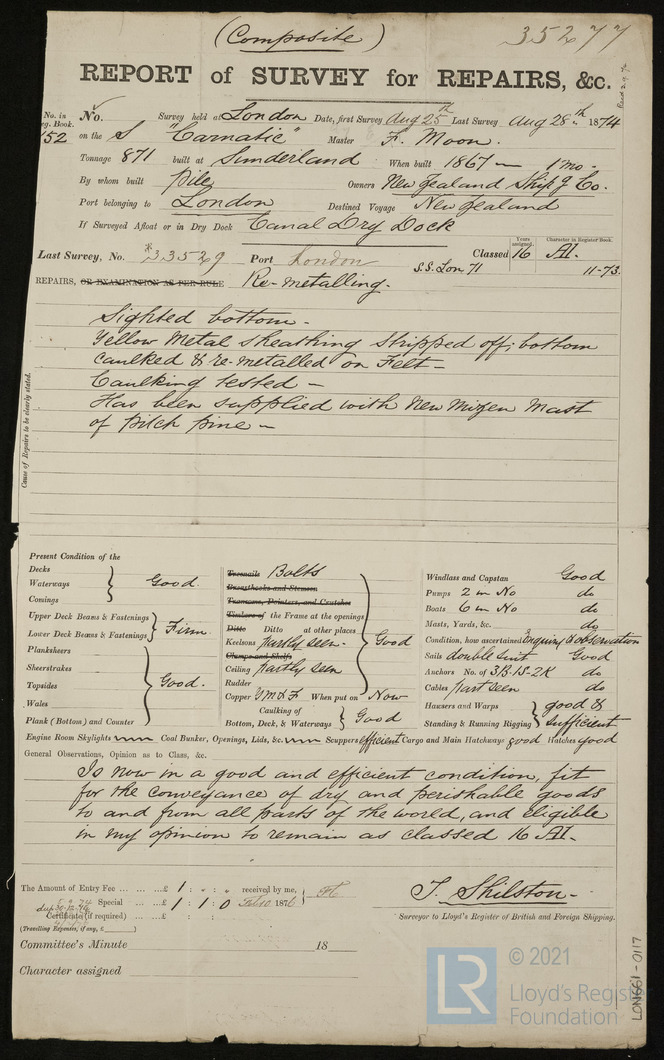 (Composite)
35277
REPORT of SURVEY for REPAIRS, &c.
No. in Reg. Book.
No. Survey held at London Date, first Survey Aug 25th Last Survey Aug 28th 1874
52 on the S "Carnatic" Master F. Moon.
Tonnage 871 built at Sunderland When built 1867 — 1 mo -
By whom built Pile Owners New Zealand Ship'g Co.
Port belonging to London Destined Voyage New Zealand
If Surveyed Afloat or in Dry Dock Canal Dry Dock
Last Survey, No. *33529 Port London Classed
Years assigned. 16
Character in Register Book. A1.
S.S. Lon 71 11-73.
REPAIRS, OR EXAMINATION AS PER RULE Re-metalling.
Cause of Repairs to be clearly stated.
Sighted bottom -
Yellow Metal sheathing stripped off; bottom
caulked & re-metalled on Felt -
Caulking tested -
Has been supplied with New Mizen Mast
of pitch pine -
Present Condition of the
Decks
Waterways
Comings
Good
Upper Deck Beams & Fastenings
Lower Deck Beams & Fastenings
Firm
Planksheers
Sheerstrakes
Topsides
Wales
Plank (Bottom) and Counter
Good.
Treenails Bolts
Breasthooks and Stemson
Transoms, Pointers, and Crutches
Timbers of the Frame at the openings
Ditto Ditto at other places
Keelsons partly seen.
Clamps and Shelfs
Ceiling partly seen
Rudder
Good
Copper Y.M & F When put on Now
Caulking of
Bottom, Deck, & Waterways Good
Windlass and Capstan Good
Pumps 2 in No do
Boats 6 in No do
Masts, Yards, &c. do
Condition, how ascertained Enquiry & observation
Sails double suit Good
Anchors No. of 3B.1S-2K do
Cables part seen do
Hawsers and Warps
Standing & Running Rigging
good & sufficient
Engine Room Skylights Coal Bunker, Openings, Lids, &c. Scuppers efficient Cargo and Main Hatchways good Hatches good
General Observations, Opinion as to Class, &c.
Is now in a good and efficient condition, fit
for the conveyance of dry and perishable goods
to and from all parts of the world, and eligible
in my opinion to remain as classed 16 A1.
The Amount of Entry Fee ... ... £ 1 : " : " received by me,
Special ... ... £ 1 : 1 : 0 187
Certificate (if required) ... £ : :
(Travelling Expenses, if any, £ )
T. Shilston -
Surveyor to Lloyd's Register of British and Foreign Shipping.
Committee's Minute 18
Character assigned
LR
© 2021
Lloyd's Register
Foundation
LON661-0117